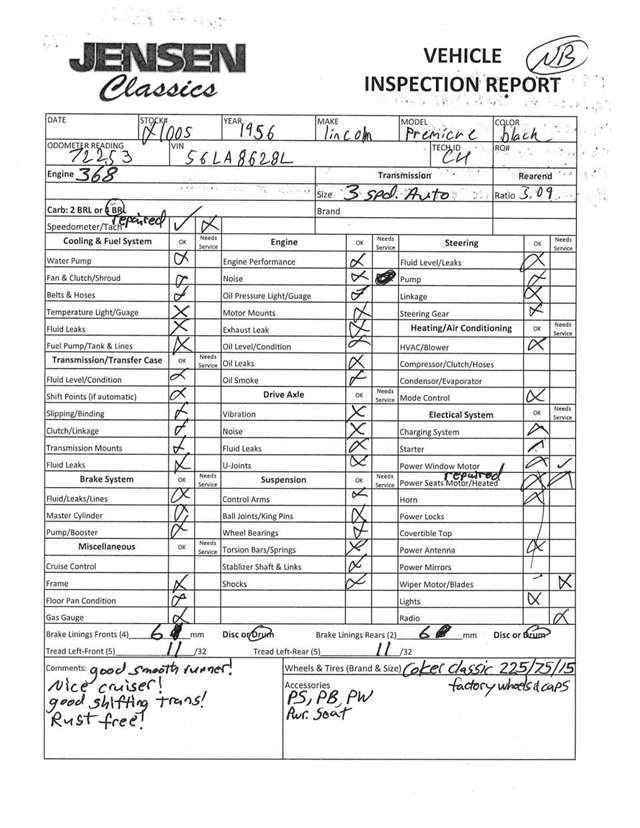 JENSEN
Classics
VEHICLE
INSPECTION REPORT
NB
DATE STOCK# YEAR MAKE MODEL COLOR
1005 1956 Lincoln Premiere black
ODOMETER READING VIN TECH ID RO#
72253 56LA8628L CU
Engine 368 Transmission Rearend
Size 3 spd. Auto Ratio 3.09
Carb: 2 BRL or 4 BRL Brand
Speedometer/Tach repaired
Cooling & Fuel System OK Needs Service Engine OK Needs Service Steering OK Needs Service
Water Pump Engine Performance Fluid Level/Leaks
Fan & Clutch/Shroud Noise Pump
Belts & Hoses Oil Pressure Light/Guage Linkage
Temperature Light/Guage Motor Mounts Steering Gear
Fluid Leaks Exhaust Leak Heating/Air Conditioning OK Needs Service
Fuel Pump/Tank & Lines Oil Level/Condition HVAC/Blower
Transmission/Transfer Case OK Needs Service Oil Leaks Compressor/Clutch/Hoses
Fluid Level/Condition Oil Smoke Condensor/Evaporator
Shift Points (if automatic) Drive Axle OK Needs Service Mode Control
Slipping/Binding Vibration Electical System OK Needs Service
Clutch/Linkage Noise Charging System
Transmission Mounts Fluid Leaks Starter
Fluid Leaks U-Joints Power Window Motor
Brake System OK Needs Service Suspension OK Needs Service Power Seats Motor/Heated repaired
Fluid/Leaks/Lines Control Arms Horn
Master Cylinder Ball Joints/King Pins Power Locks
Pump/Booster Wheel Bearings Covertible Top
Miscellaneous OK Needs Service Torsion Bars/Springs Power Antenna
Cruise Control Stablizer Shaft & Links Power Mirrors
Frame Shocks Wiper Motor/Blades
Floor Pan Condition Lights
Gas Gauge Radio
Brake Linings Fronts (4) 6 mm Disc or Drum Brake Linings Rears (2) 6 mm Disc or Drum
Tread Left-Front (5) 11 /32 Tread Left-Rear (5) 11 /32
Comments: good smooth runner! Wheels & Tires (Brand & Size) Coker Classic 225/75/15
Nice cruiser! Accessories factory wheels & caps
good shifting trans! PS, PB, PW
Rust free! Pwr. Seat